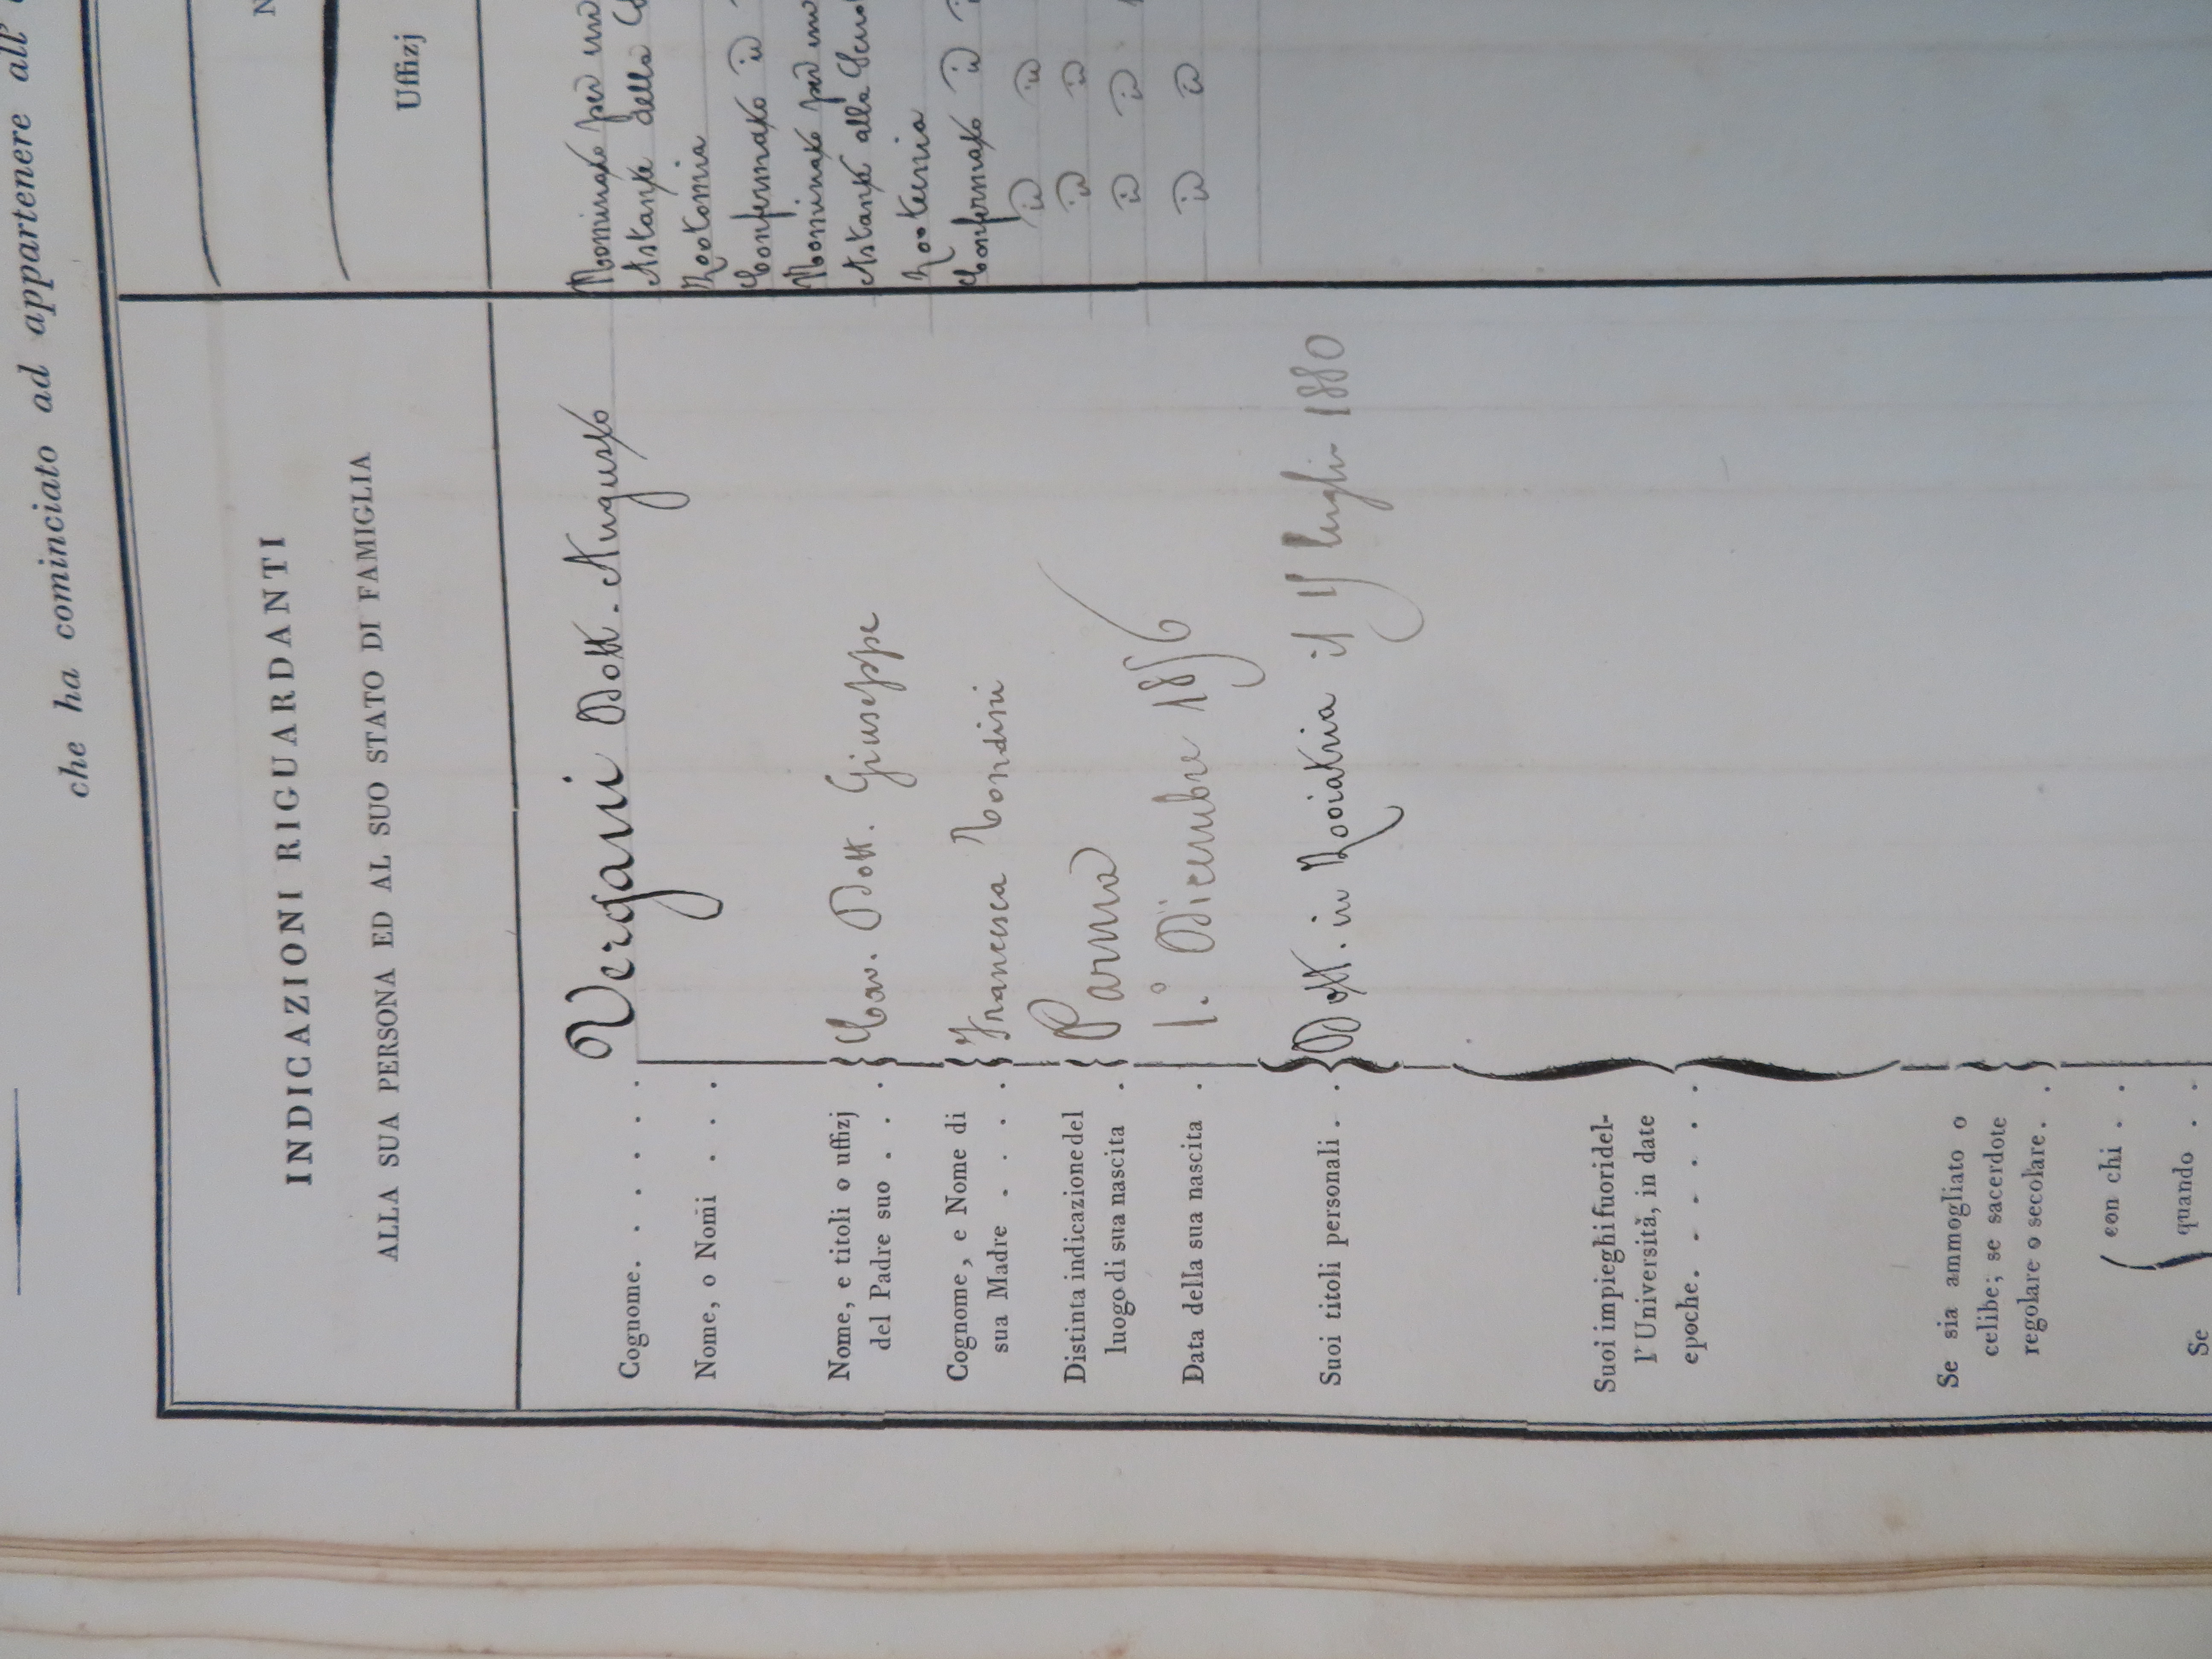 che ha cominciato ad appartenere all'
INDICAZIONI RIGUARDANTI
ALLA SUA PERSONA ED AL SUO STATO DI FAMIGLIA
Cognome. . . . . . Vergani Dott. Augusto
Nome, o Nomi . . . .
Nome, e titoli o uffizj
del Padre suo . . . Cav. Dott. Giuseppe
Cognome, e Nome di
sua Madre . . . . Francesca Mondini
Distinta indicazione del
luogo di sua nascita . Parma
Data della sua nascita . 1.° Dicembre 1856
Suoi titoli personali . . Dott. in Zooiatria il luglio 1880
Suoi impieghi fuori del-
l'Università, in date
epoche. . . . . .
Se sia ammogliato o
celibe; se sacerdote
regolare o secolare. .
con chi . .
Se
quando . .
N
Uffizj
Nominato per un
Astante della
Zootomia
Confermato id
Nominato per un
Astante alla
Zootecnia
Confermato id
id id
id id
id id
id id